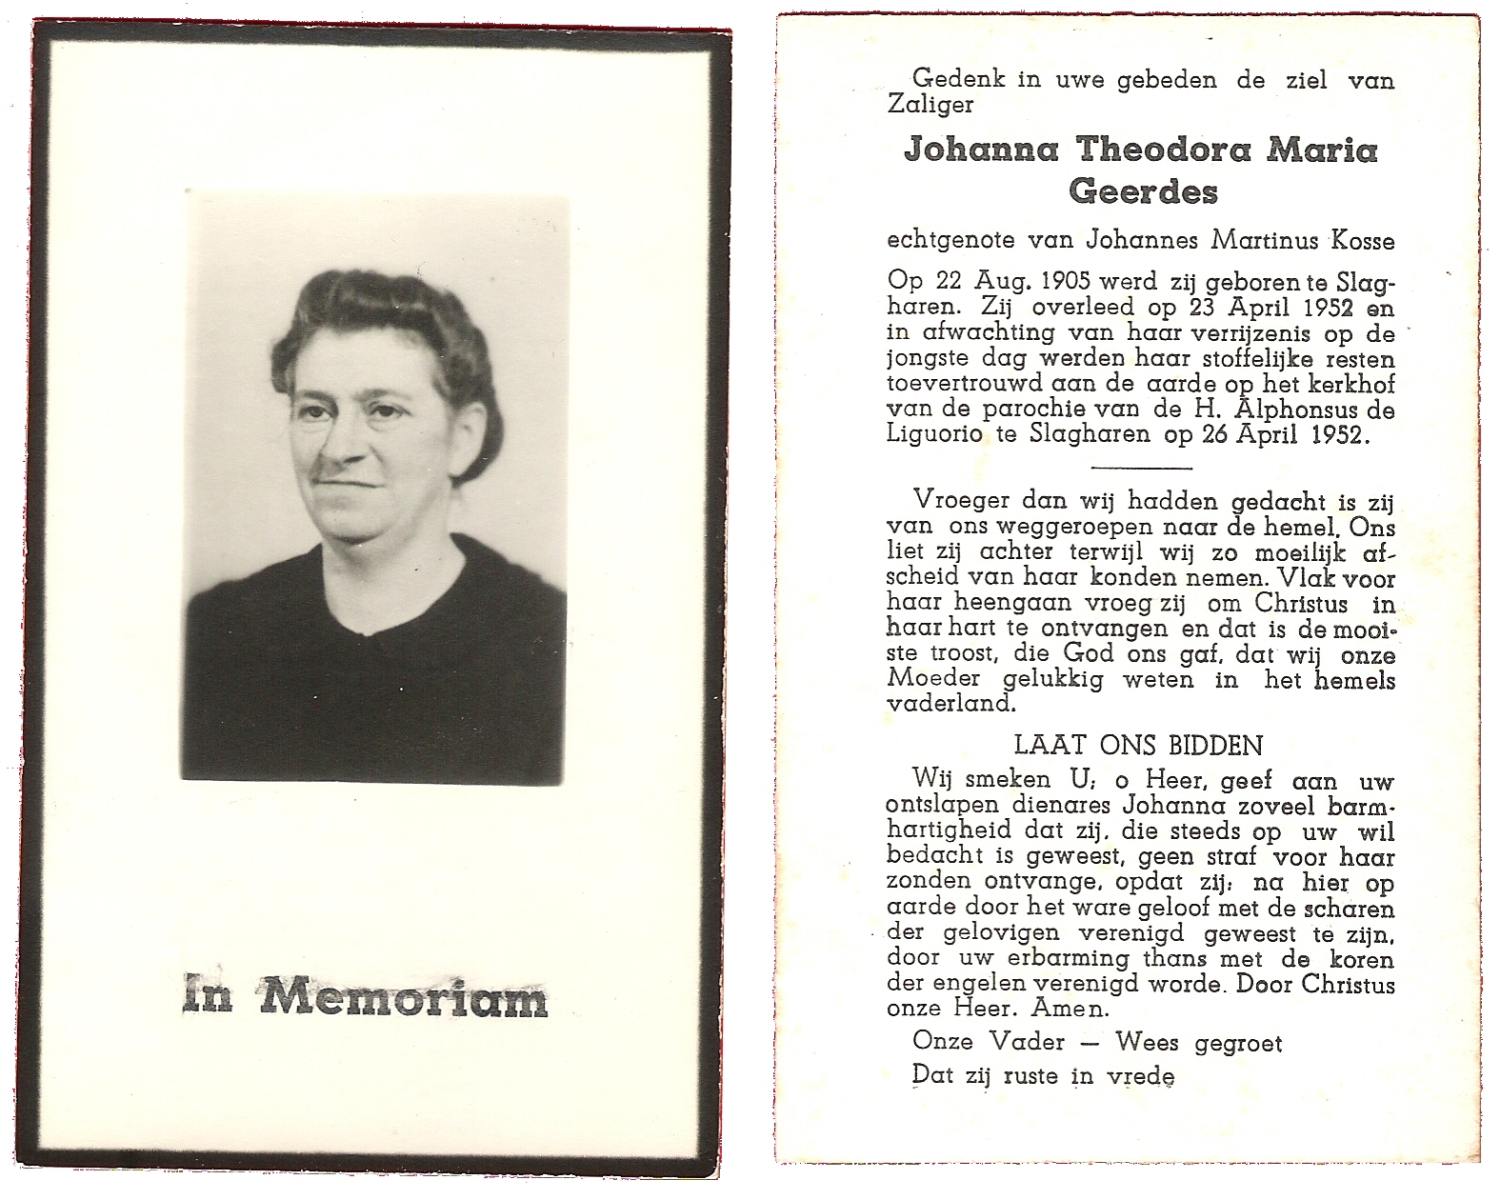 In Memoriam
Gedenk in uwe gebeden de ziel van
Zaliger
Johanna Theodora Maria
Geerdes
echtgenote van Johannes Martinus Kosse
Op 22 Aug. 1905 werd zij geboren te Slag-
haren. Zij overleed op 23 April 1952 en
in afwachting van haar verrijzenis op de
jongste dag werden haar stoffelijke resten
toevertrouwd aan de aarde op het kerkhof
van de parochie van de H. Alphonsus de
Liguorio te Slagharen op 26 April 1952.
Vroeger dan wij hadden gedacht is zij
van ons weggeroepen naar de hemel. Ons
liet zij achter terwijl wij zo moeilijk af-
scheid van haar konden nemen. Vlak voor
haar heengaan vroeg zij om Christus in
haar hart te ontvangen en dat is de mooi-
ste troost, die God ons gaf, dat wij onze
Moeder gelukkig weten in het hemels
vaderland.
LAAT ONS BIDDEN
Wij smeken U; o Heer, geef aan uw
ontslapen dienares Johanna zoveel barm-
hartigheid dat zij, die steeds op uw wil
bedacht is geweest, geen straf voor haar
zonden ontvange, opdat zij; na hier op
aarde door het ware geloof met de scharen
der gelovigen verenigd geweest te zijn,
door uw erbarming thans met de koren
der engelen verenigd worde. Door Christus
onze Heer. Amen.
Onze Vader — Wees gegroet
Dat zij ruste in vrede